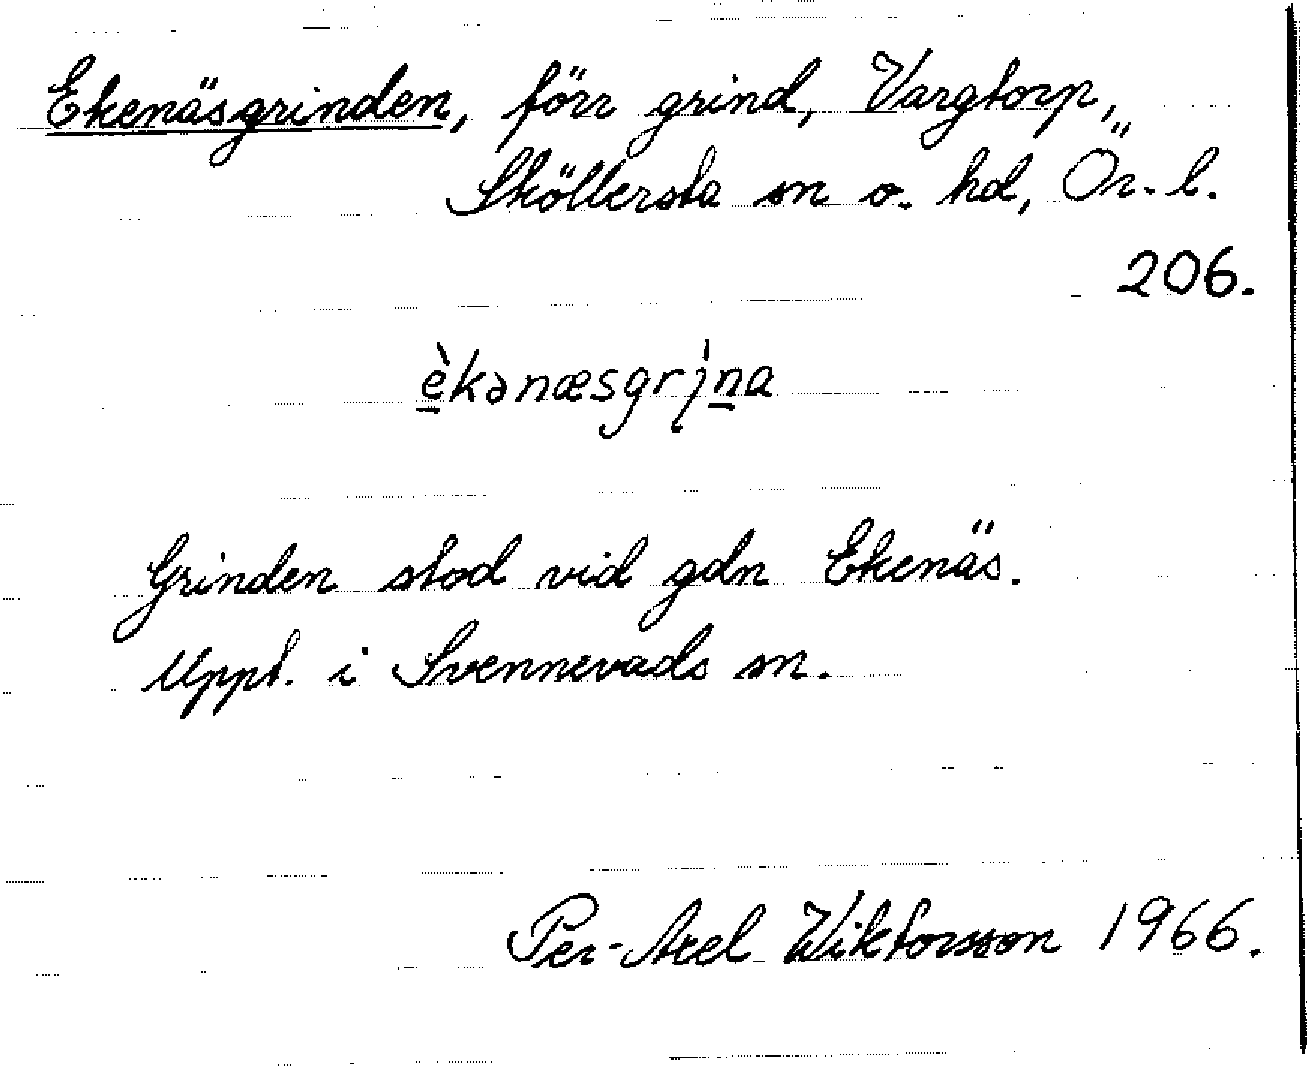 Ekenäsgrinden, förr grind, Vargtorp,
Sköllersta sn o. hd, Ör. l.
206.
è̱kənæsgrịṉa
Grinden stod vid gdn Ekenäs.
Uppt. i Svennevads sn.
Per-Axel Wiktorsson 1966.